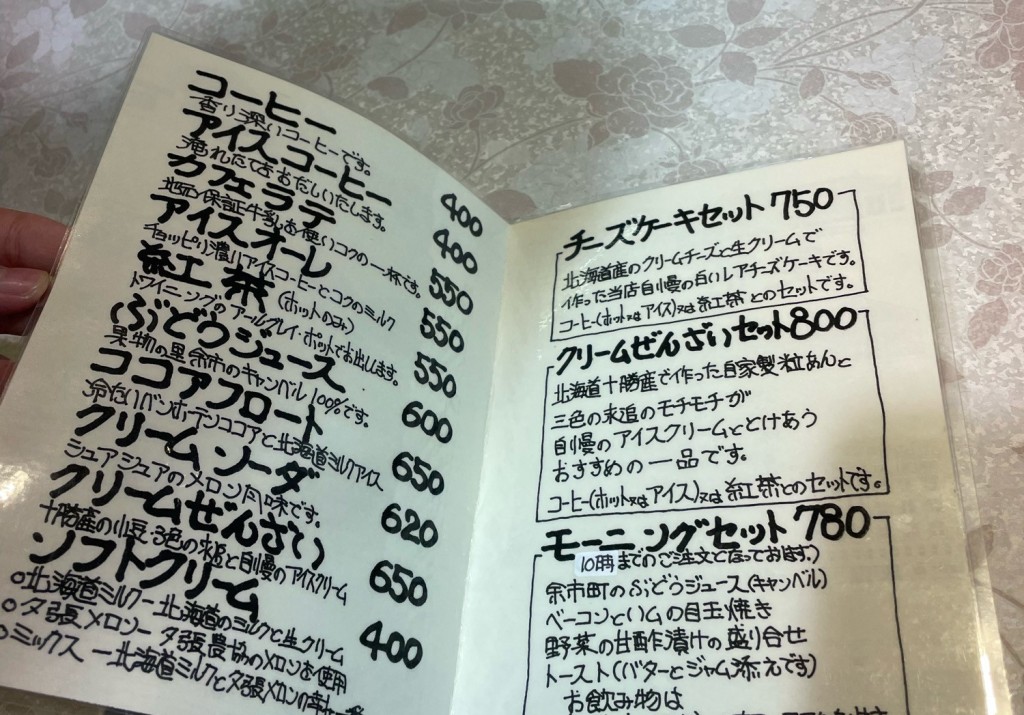 コーヒー 400
香り深いコーヒーです。
アイスコーヒー 400
淹れたてをおだしいたします。
カフェラテ 550
地元保証牛乳お使いコクの一杯です。
アイスオーレ 550
チョッピリ濃いアイスコーヒーとコクのミルク
紅茶(ホットのみ) 550
トワイニングのアールグレイ・ホットでお出しします。
ぶどうジュース 600
果物の里余市のキャンベル100%です。
ココアフロート 650
冷たいバンホーテンココアと北海道ミルクアイス
クリームソーダ 620
シュアシュアのメロン風味です。
クリームぜんざい 650
十勝産の小豆・3色の米追と自慢のアイスクリーム
ソフトクリーム 400
○北海道ミルクー北海道のミルクと生クリーム
○夕張メロンー夕張農協のメロンを使用
○ミックスー北海道ミルクと夕張メロンの
チーズケーキセット750
北海道産のクリームチーズと生クリームで
作った当店自慢の白いレアチーズケーキです。
コーヒー(ホット又はアイス)又は紅茶とのセットです。
クリームぜんざいセット800
北海道十勝産で作った自家製粒あんと
三色の米追のモチモチが
自慢のアイスクリームととけあう
おすすめの一品です。
コーヒー(ホット又はアイス)又は紅茶とのセットです。
モーニングセット780
10時までのご注文となっております。)
余市町のぶどうジュース(キャンベル)
ベーコンといムの目玉焼き
野菜の甘酢漬けの盛り合せ
トースト(バターとジャム添えです)
お飲み物は